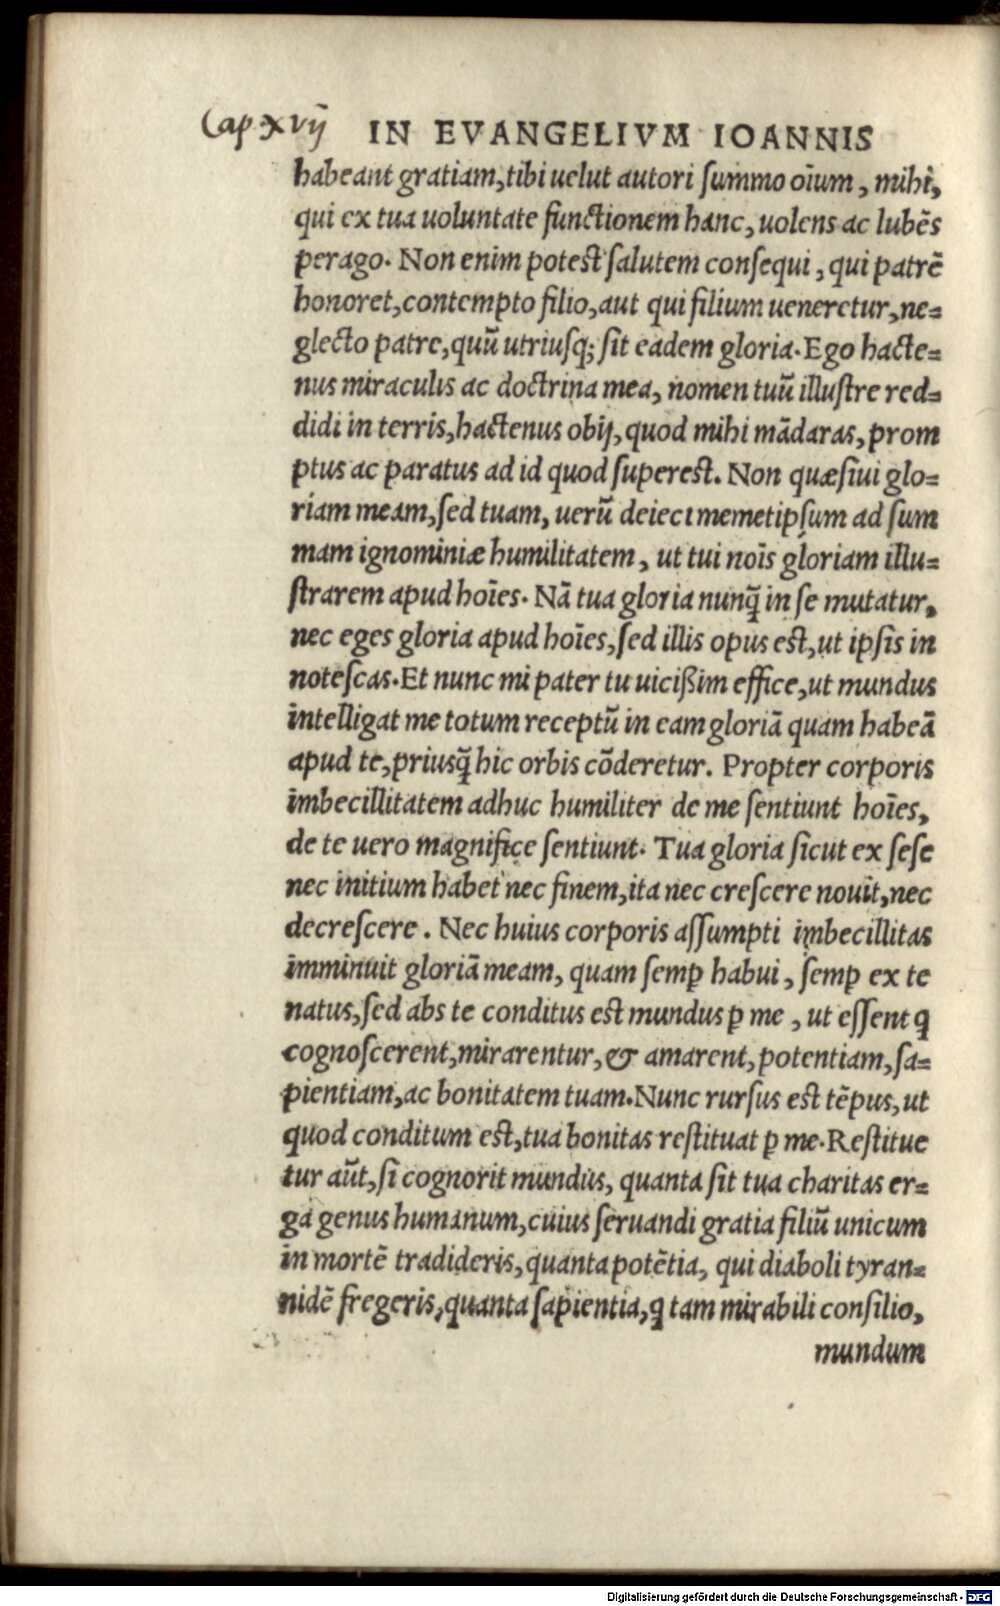 Cap xvij
IN EVANGELIVM IOANNIS
habeant gratiam, tibi uelut autori summo oĩum, mihi,
qui ex tua uoluntate functionem hanc, uolens ac lubẽs
perago. Non enim potest salutem consequi, qui patrẽ
honoret, contempto filio, aut qui filium ueneretur, ne=
glecto patre, quũ utriusq; sit eadem gloria. Ego hacte=
nus miraculis ac doctrina mea, nomen tuũ illustre red=
didi in terris, hactenus obij, quod mihi mãdaras, prom
ptus ac paratus ad id quod superest. Non quæsiui glo=
riam meam, sed tuam, uerũ deieci memetipsum ad sum
mam ignominiæ humilitatem, ut tui noĩs gloriam illu=
strarem apud hoĩes. Nã tua gloria nunq̃ in se mutatur,
nec eges gloria apud hoĩes, sed illis opus est, ut ipsis in
notescas. Et nunc mi pater tu uicißim effice, ut mundus
intelligat me totum receptũ in eam gloriã quam habeã
apud te, priusq̃ hic orbis cõderetur. Propter corporis
imbecillitatem adhuc humiliter de me sentiunt hoĩes,
de te uero magnifice sentiunt. Tua gloria sicut ex sese
nec initium habet nec finem, ita nec crescere nouit, nec
decrescere. Nec huius corporis assumpti imbecillitas
imminuit gloriã meam, quam semꝑ habui, semꝑ ex te
natus, sed abs te conditus est mundus ꝑ me, ut essent ꝗ
cognoscerent, mirarentur, & amarent, potentiam, sa=
pientiam, ac bonitatem tuam. Nunc rursus est tẽpus, ut
quod conditum est, tua bonitas restituat ꝑ me. Restitue
tur aũt, si cognorit mundus, quanta sit tua charitas er=
ga genus humanum, cuius seruandi gratia filiũ unicum
in mortẽ tradideris, quanta potẽtia, qui diaboli tyran=
nidẽ fregeris, quanta sapientia, ꝗ tam mirabili consilio,
mundum
Digitalisierung gefördert durch die Deutsche Forschungsgemeinschaft - DFG